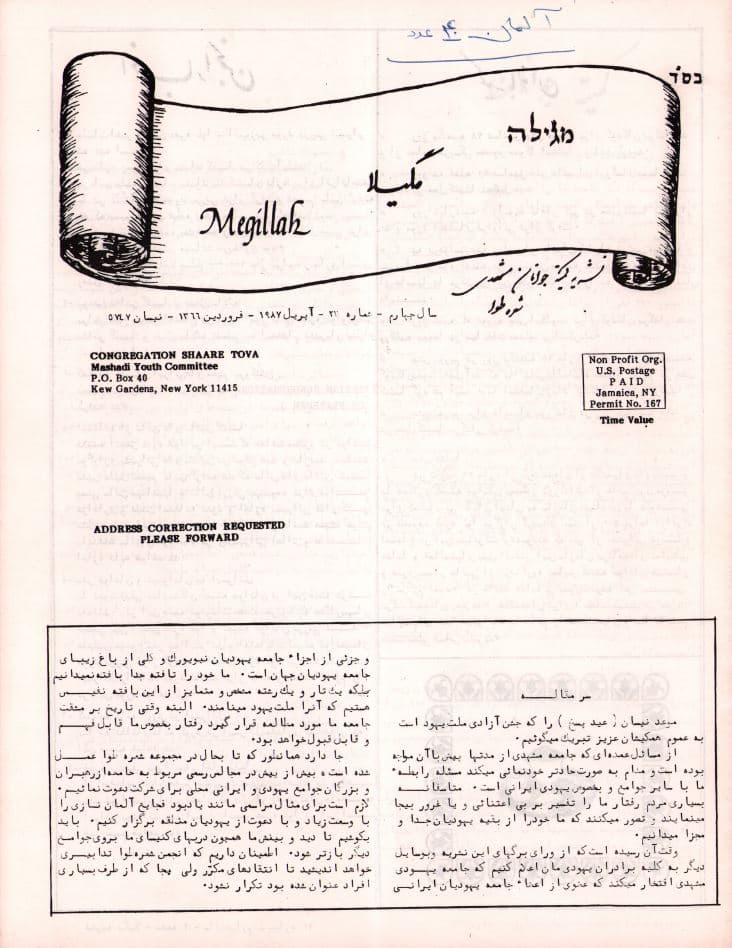 آلمان ۴۰ عدد
בס"ד
מגילה
مگیلا
Megillah
نشریه کمیته جوانان مشهدی
شعره طوا
سال چهارم - شماره ۳۲ - آپریل ۱۹۸۷ - فروردین ۱۳۶۶ - نیسان ۵۷۴۷
CONGREGATION SHAARE TOVA
Mashadi Youth Committee
P.O. Box 40
Kew Gardens, New York 11415
Non Profit Org.
U.S. Postage
PAID
Jamaica, NY
Permit No. 167
Time Value
ADDRESS CORRECTION REQUESTED
PLEASE FORWARD
سر مقاله
موعد نیسان ( عید پسح ) را که جشن آزادی ملت یهود است
به عموم همکیشان عزیز تبریک میگوئیم.
از مسائل عمده‌ای که جامعه مشهدی از مدتها پیش با آن مواجه
بوده است و مدام به صورت حادتر خودنمائی میکند مسئله رابطه
ما با سایر جوامع و بخصوص یهودی ایرانی است. متاسفانه
بسیاری مردم رفتار ما را تفسیر بر بی اعتنائی و یا غرور بیجا
مینمایند و تصور میکنند که ما خود را از بقیه یهودیان جدا و
مجزا میدانیم.
وقت آن رسیده است که از ورای برگهای این نشریه و بوسایل
دیگر به کلیه برادران یهودی مان اعلام کنیم که جامعه یهودی
مشهدی افتخار میکند که عضوی از اعضاء جامعه یهودیان ایرانی
و جزئی از اجزاء جامعه یهودیان نیویورک و گلی از باغ زیبای
جامعه یهودیان جهان است. ما خود را تافته جدا بافته نمیدانیم
بلکه یک تار و یک رشته مشخص و متمایز از این بافته نفیس
هستیم که آنرا ملت یهود مینامند. البته وقتی تاریخ پر مشقت
جامعه ما مورد مطالعه قرار گیرد رفتار بخصوص ما قابل فهم
و قابل قبول خواهد بود.
جا دارد همانطور که تا بحال در مجموعه شعره طوا عمل
شده است بیش از پیش در مجالس رسمی مربوط به جامعه از رهبران
و بزرگان جوامع یهودی و ایرانی محلی برای شرکت دعوت نمائیم.
لازم است برای مثال مراسمی مانند یادبود فجایع آلمان نازی را
با وسعت زیاد و با دعوت از یهودیان منطقه برگزار کنیم. باید
بکوشیم تا دید و بینش ما همچون دربهای کنیسای ما بروی جوامع
دیگر بازتر شود. اطمینان داریم که انجمن شعره طوا تدابیری
خواهد اندیشید تا انتقادهای مکرر ولی بجا که از طرف بسیاری
افراد عنوان شده بود تکرار نشود.